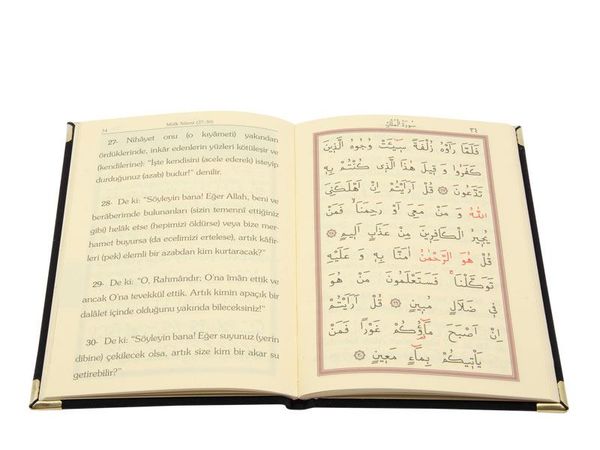 34
Mülk Sûresi (27-30)
27- Nihâyet onu (o kıyâmeti) yakından
ördüklerinde, inkâr edenlerin yüzleri kötüleşir ve
(kendilerine): “İşte kendisini (acele ederek) isteyip
durduğunuz (azab) budur!” denilir.
28- De ki: “Söyleyin bana! Eğer Allah, beni ve
berâberimde bulunanları (sizin temenni ettiğiniz
gibi) helâk etse (hepimizi öldürse) veya bize mer-
hamet buyursa (da ecelimizi ertelese), artık kâfir-
leri (pek) elemli bir azabdan kim kurtaracak?”
29- De ki: “O, Rahmândır; O'na îman ettik ve
ancak O'na tevekkül ettik. Artık kimin apaçık bir
dalâlet içinde olduğunu yakında bileceksiniz!”
30- De ki: “Söyleyin bana! Eğer suyunuz (yerin
dibine) çekilecek olsa, artık size kim bir akar su
getirebilir?”
سُورَةُ الْمُلْكِ
٣٤
فَلَمَّا رَاَوْهُ زُلْفَةً سٖٓيـَٔتْ وُجُوهُ الَّذٖينَ
كَفَرُوا وَ قٖيلَ هٰذَا الَّذٖى كُنْتُمْ بِهٖ
تَدَّعُونَ ۞ قُلْ اَرَاَيْتُمْ اِنْ اَهْلَكَنِىَ
اللّٰهُ وَ مَنْ مَعِىَ اَوْ رَحِمَنَاۙ فَمَنْ
يُجٖيرُ الْكَافِرٖينَ مِنْ عَذَابٍ اَلٖيمٍ ۞
قُلْ هُوَ الرَّحْمٰنُ اٰمَنَّا بِهٖ وَ عَلَيْهِ
تَوَكَّلْنَاۚ فَسَتَعْلَمُونَ مَنْ هُوَ
فٖى ضَلَالٍ مُبٖينٍ ۞ قُلْ اَرَاَيْتُمْ
اِنْ اَصْبَحَ مَٓاؤُكُمْ غَوْرًا فَمَنْ
يَاْتٖيكُمْ بِمَٓاءٍ مَعٖينٍ ۞